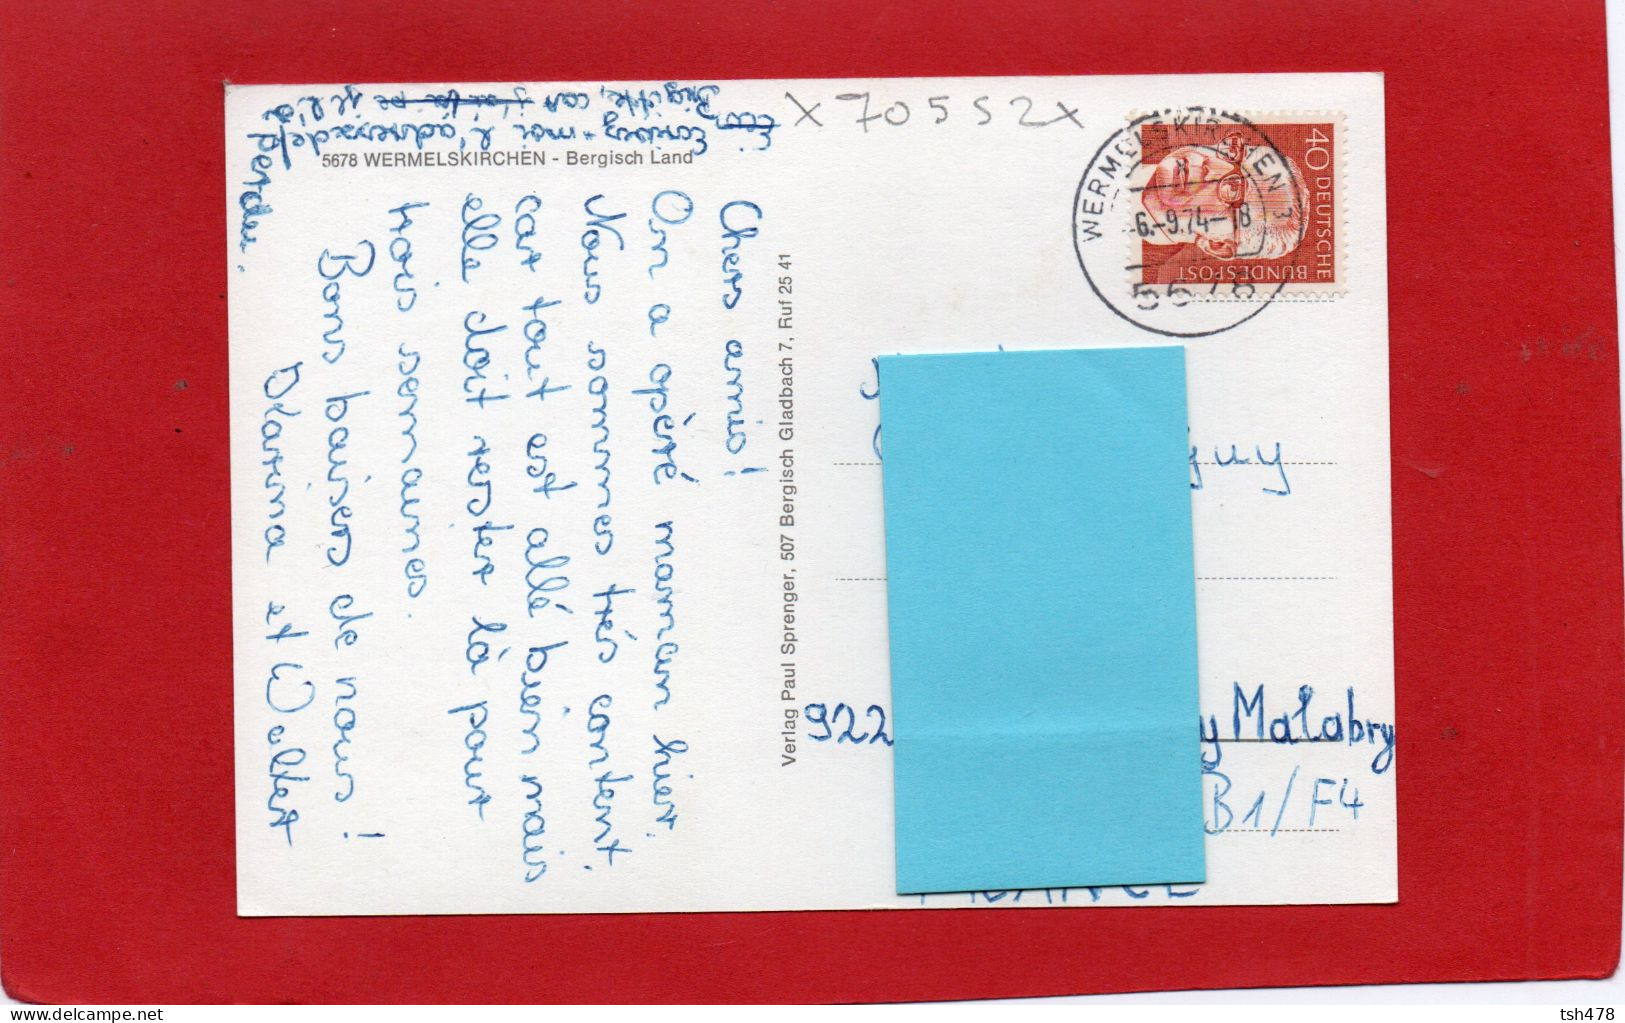 5678 WERMELSKIRCHEN - Bergisch Land
Chers amis!
On a opéré maman hier.
Nous sommes très content
car tout est allé bien mais
elle doit rester là pour
trois semaines.
Bons baisers de nous!
Marina et Walter
Ecrivez-moi l'adresse de
Brigitte, car je l'ai
perdu.
Verlag Paul Sprenger, 507 Bergisch Gladbach 7, Ruf 25 41
X 70552 X
WERMELSKIRCHEN 3
-6.-9.74-18
5678
40 DEUTSCHE
BUNDESPOST
guy
922
y Malabry
B1/F4
FRANCE
tsh478